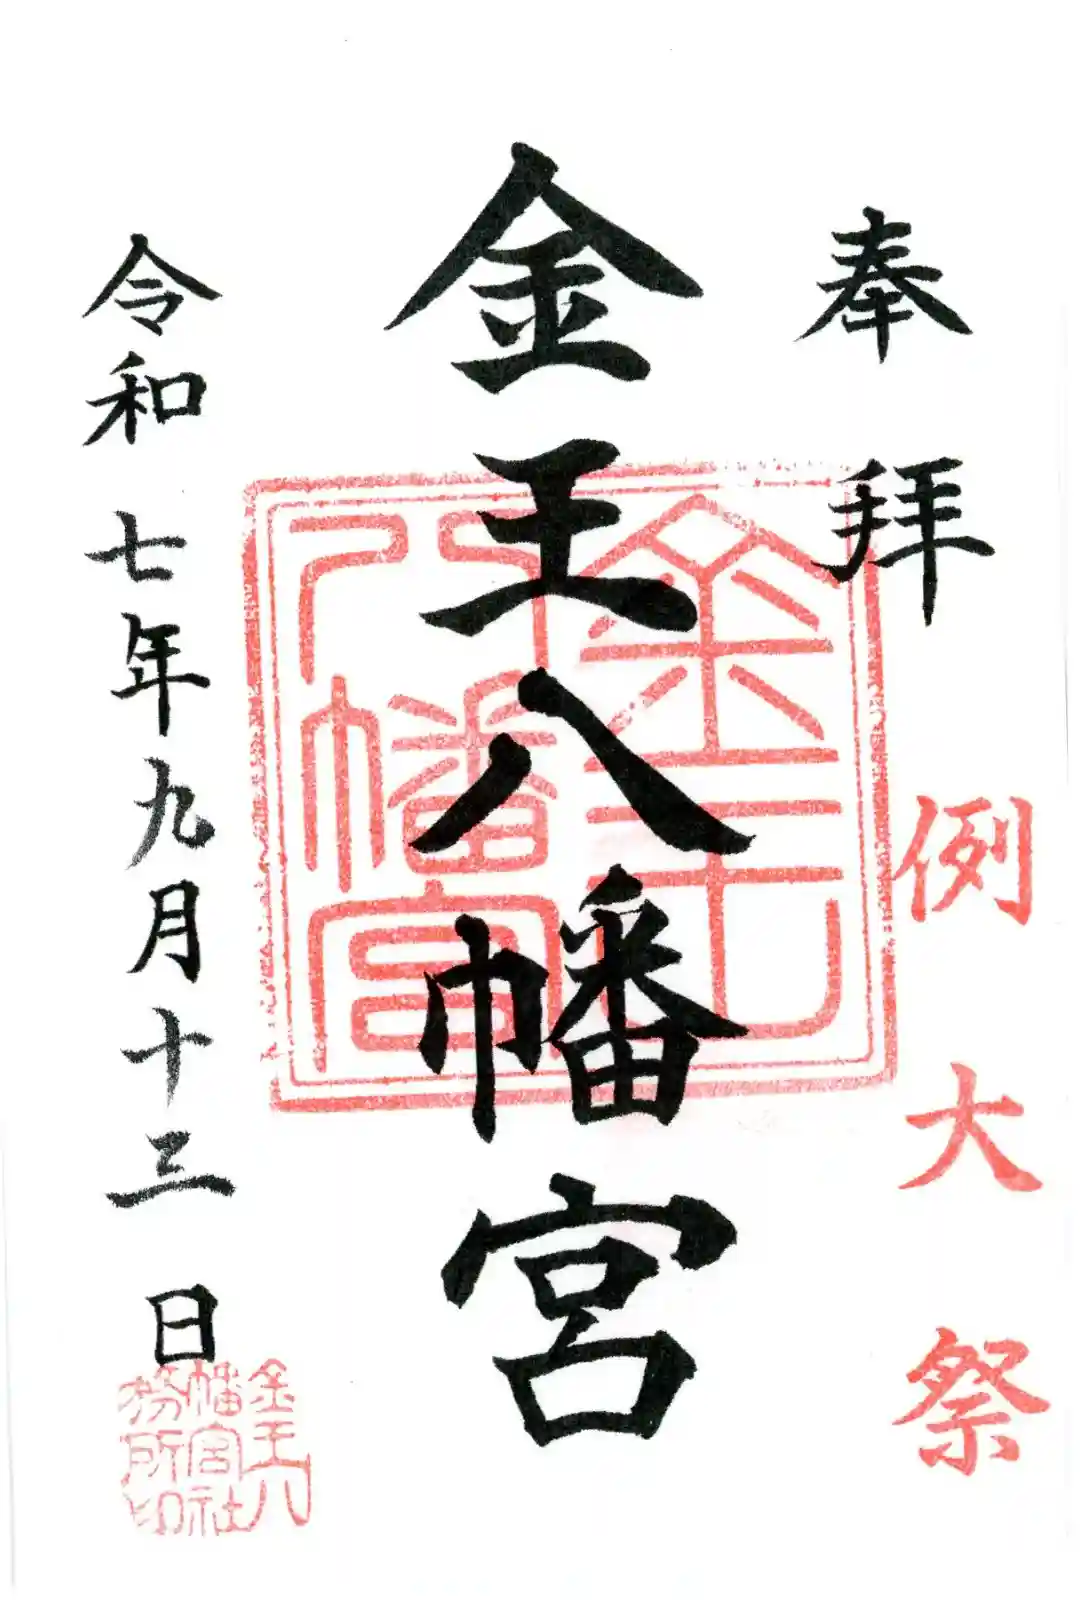 奉拝
例大祭
金王八幡宮
金王
八幡宮
令和七年九月十三日
金王八
幡宮社
務所印